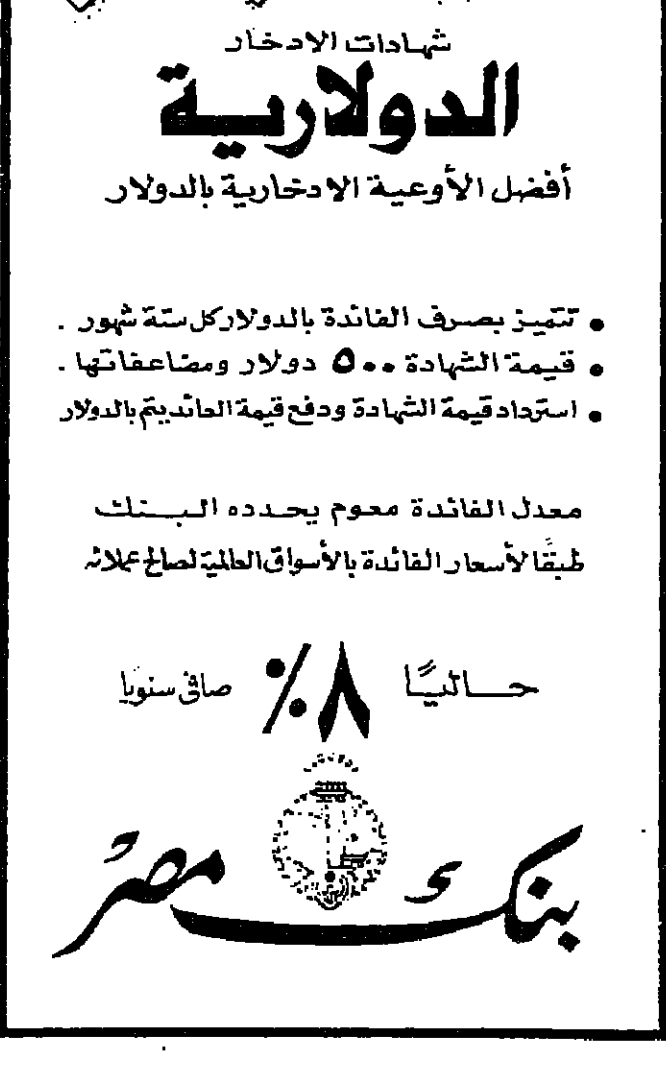 شهادات الادخار
الدولارية
أفضل الأوعية الادخارية بالدولار
• تتميز بصرف الفائدة بالدولار كل ستة شهور .
• قيمة الشهادة ٥٠٠ دولار ومضاعفاتها .
• استرداد قيمة الشهادة ودفع قيمة العائد يتم بالدولار
معدل الفائدة معوم يحدده البنك
طبقًا لأسعار الفائدة بالأسواق العالمية لصالح عملائه
حاليًا ٨٪ صافى سنويا
بنك مصر